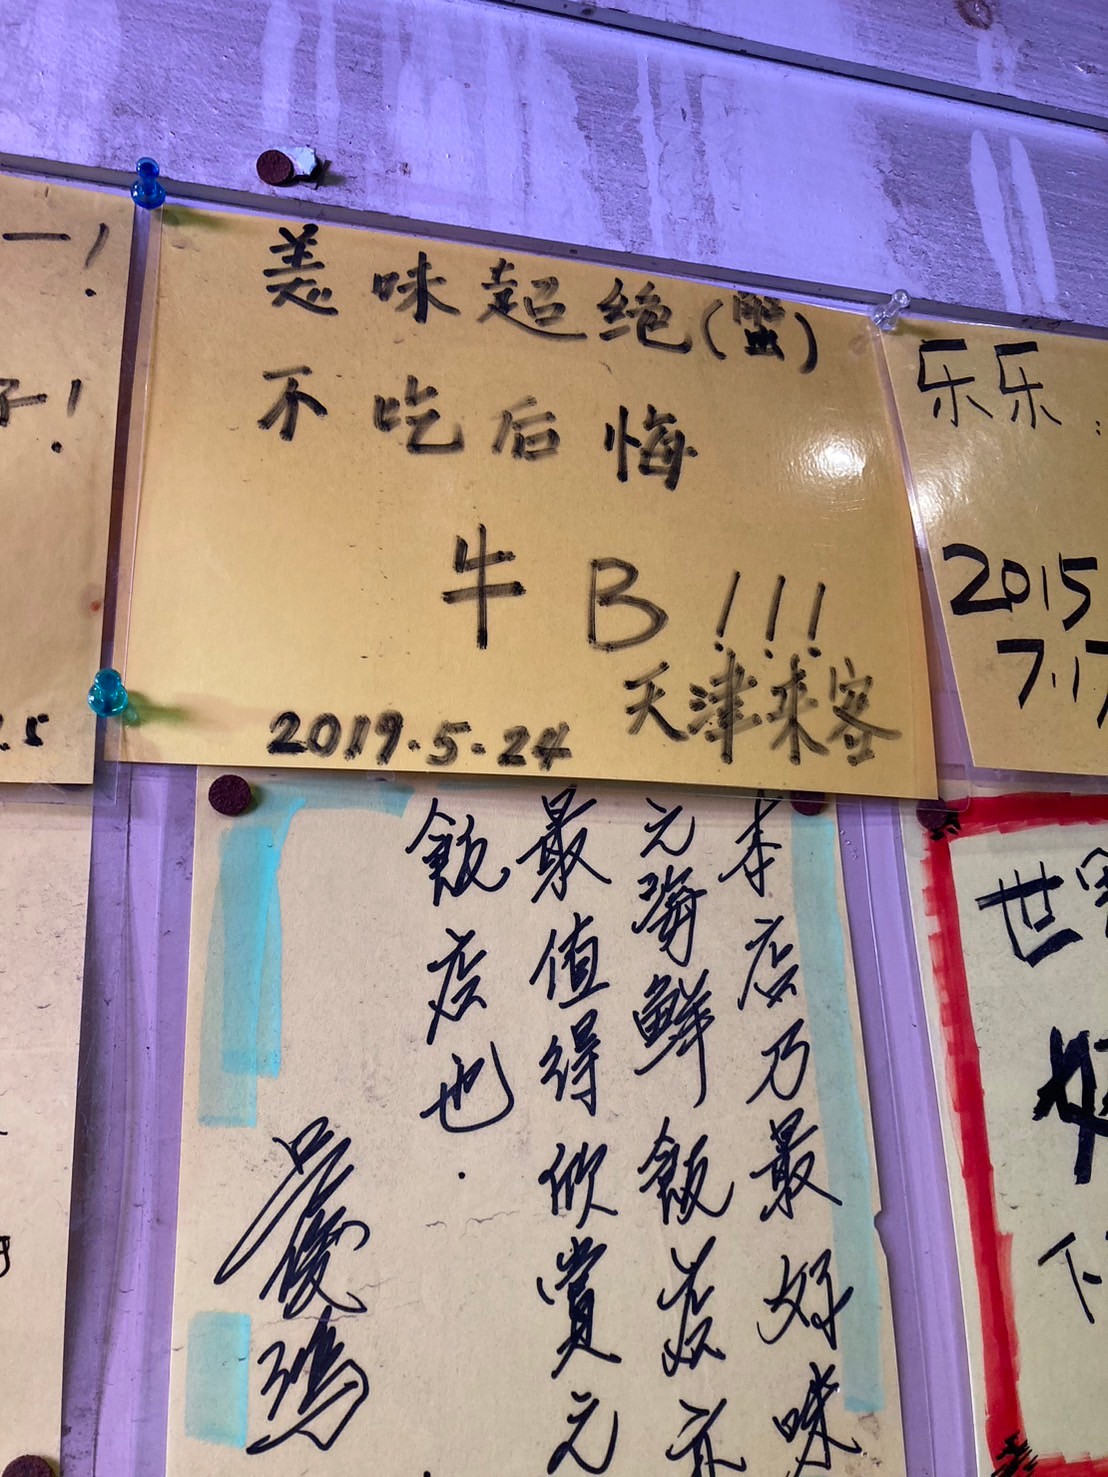 一！
子！
.5
美味超绝（蟹）
不吃后悔
牛B！！！
天津来客
2019.5.24
乐乐：
2015
7.17
本店乃最好味
之海鲜飯店亦
最值得欣賞之
飯店也.
世界
下